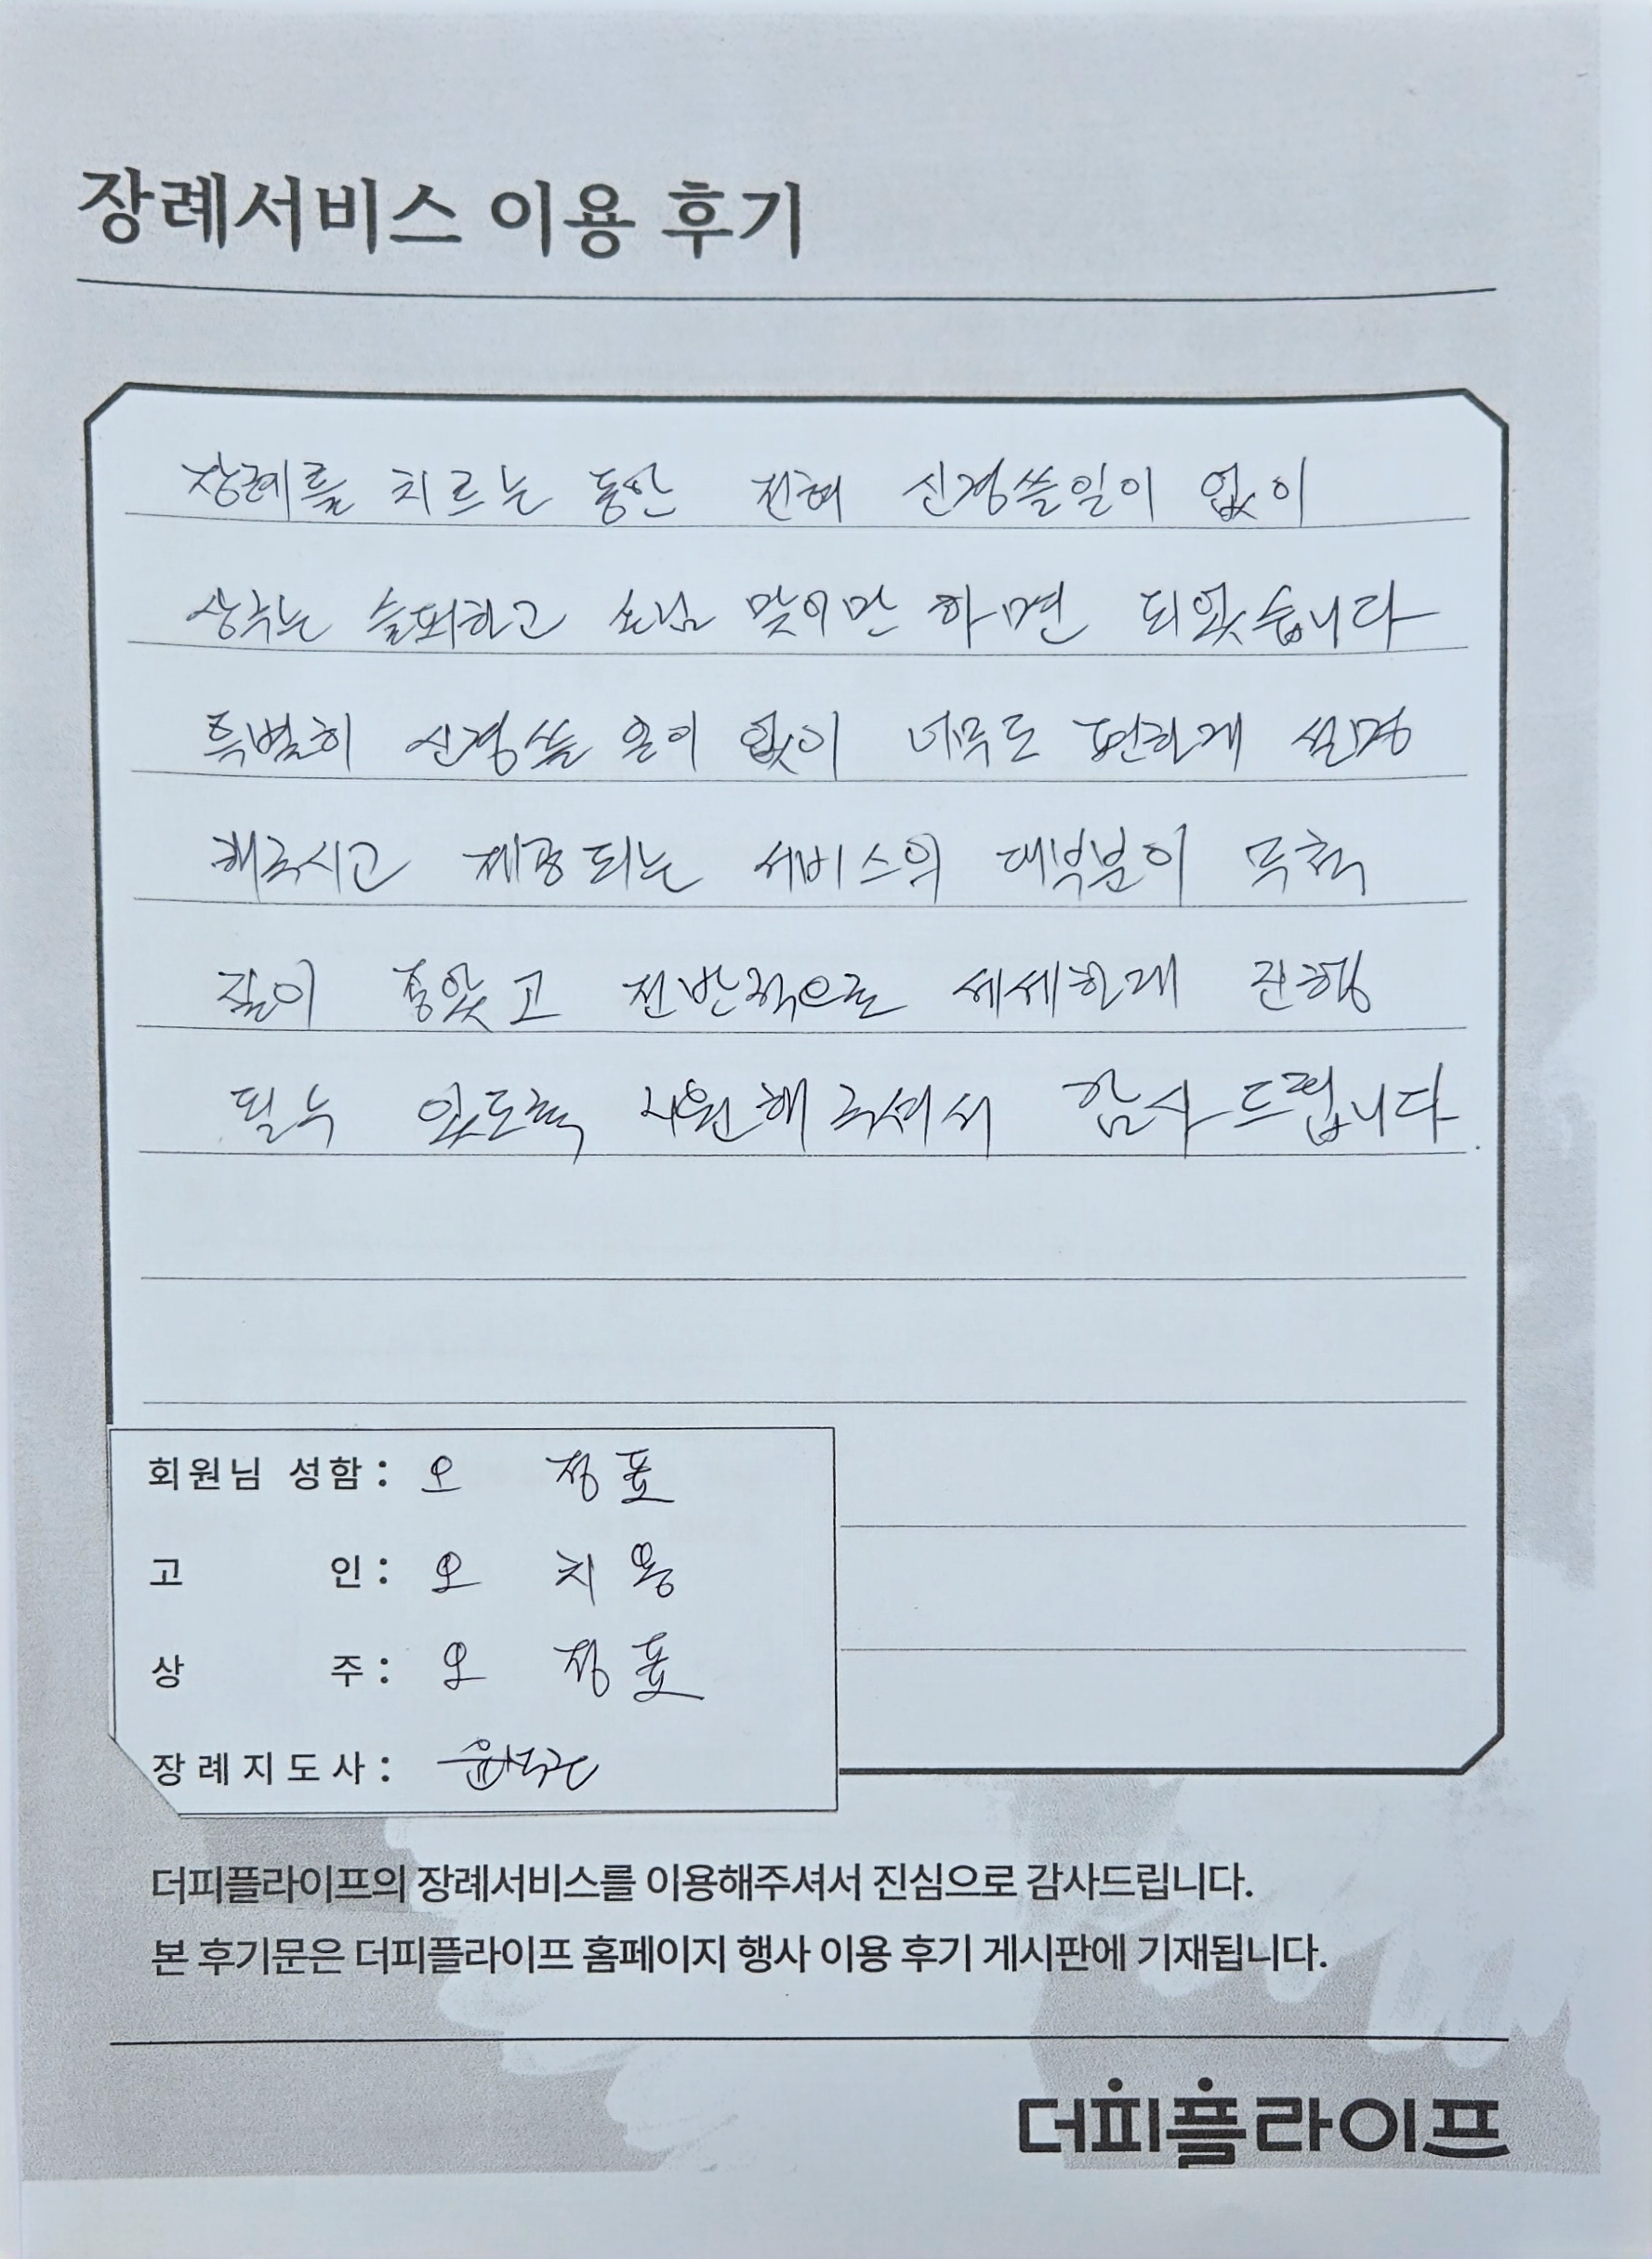 장례서비스 이용 후기
장례를 치르는 동안 전혀 신경쓸일이 없이
상주는 슬퍼하고 손님 맞이만 하면 되었습니다
특별히 신경쓸 일이 없이 너무도 편하게 설명
해주시고 제공되는 서비스의 대부분이 무척
질이 좋았고 전반적으로 세세하게 진행
될수 있도록 지원해 주셔서 감사드립니다.
회원님 성함 : 오 정표
고 인 : 오 치용
상 주 : 오 정표
장례지도사 :
더피플라이프의 장례서비스를 이용해주셔서 진심으로 감사드립니다.
본 후기문은 더피플라이프 홈페이지 행사 이용 후기 게시판에 기재됩니다.
더피플라이프